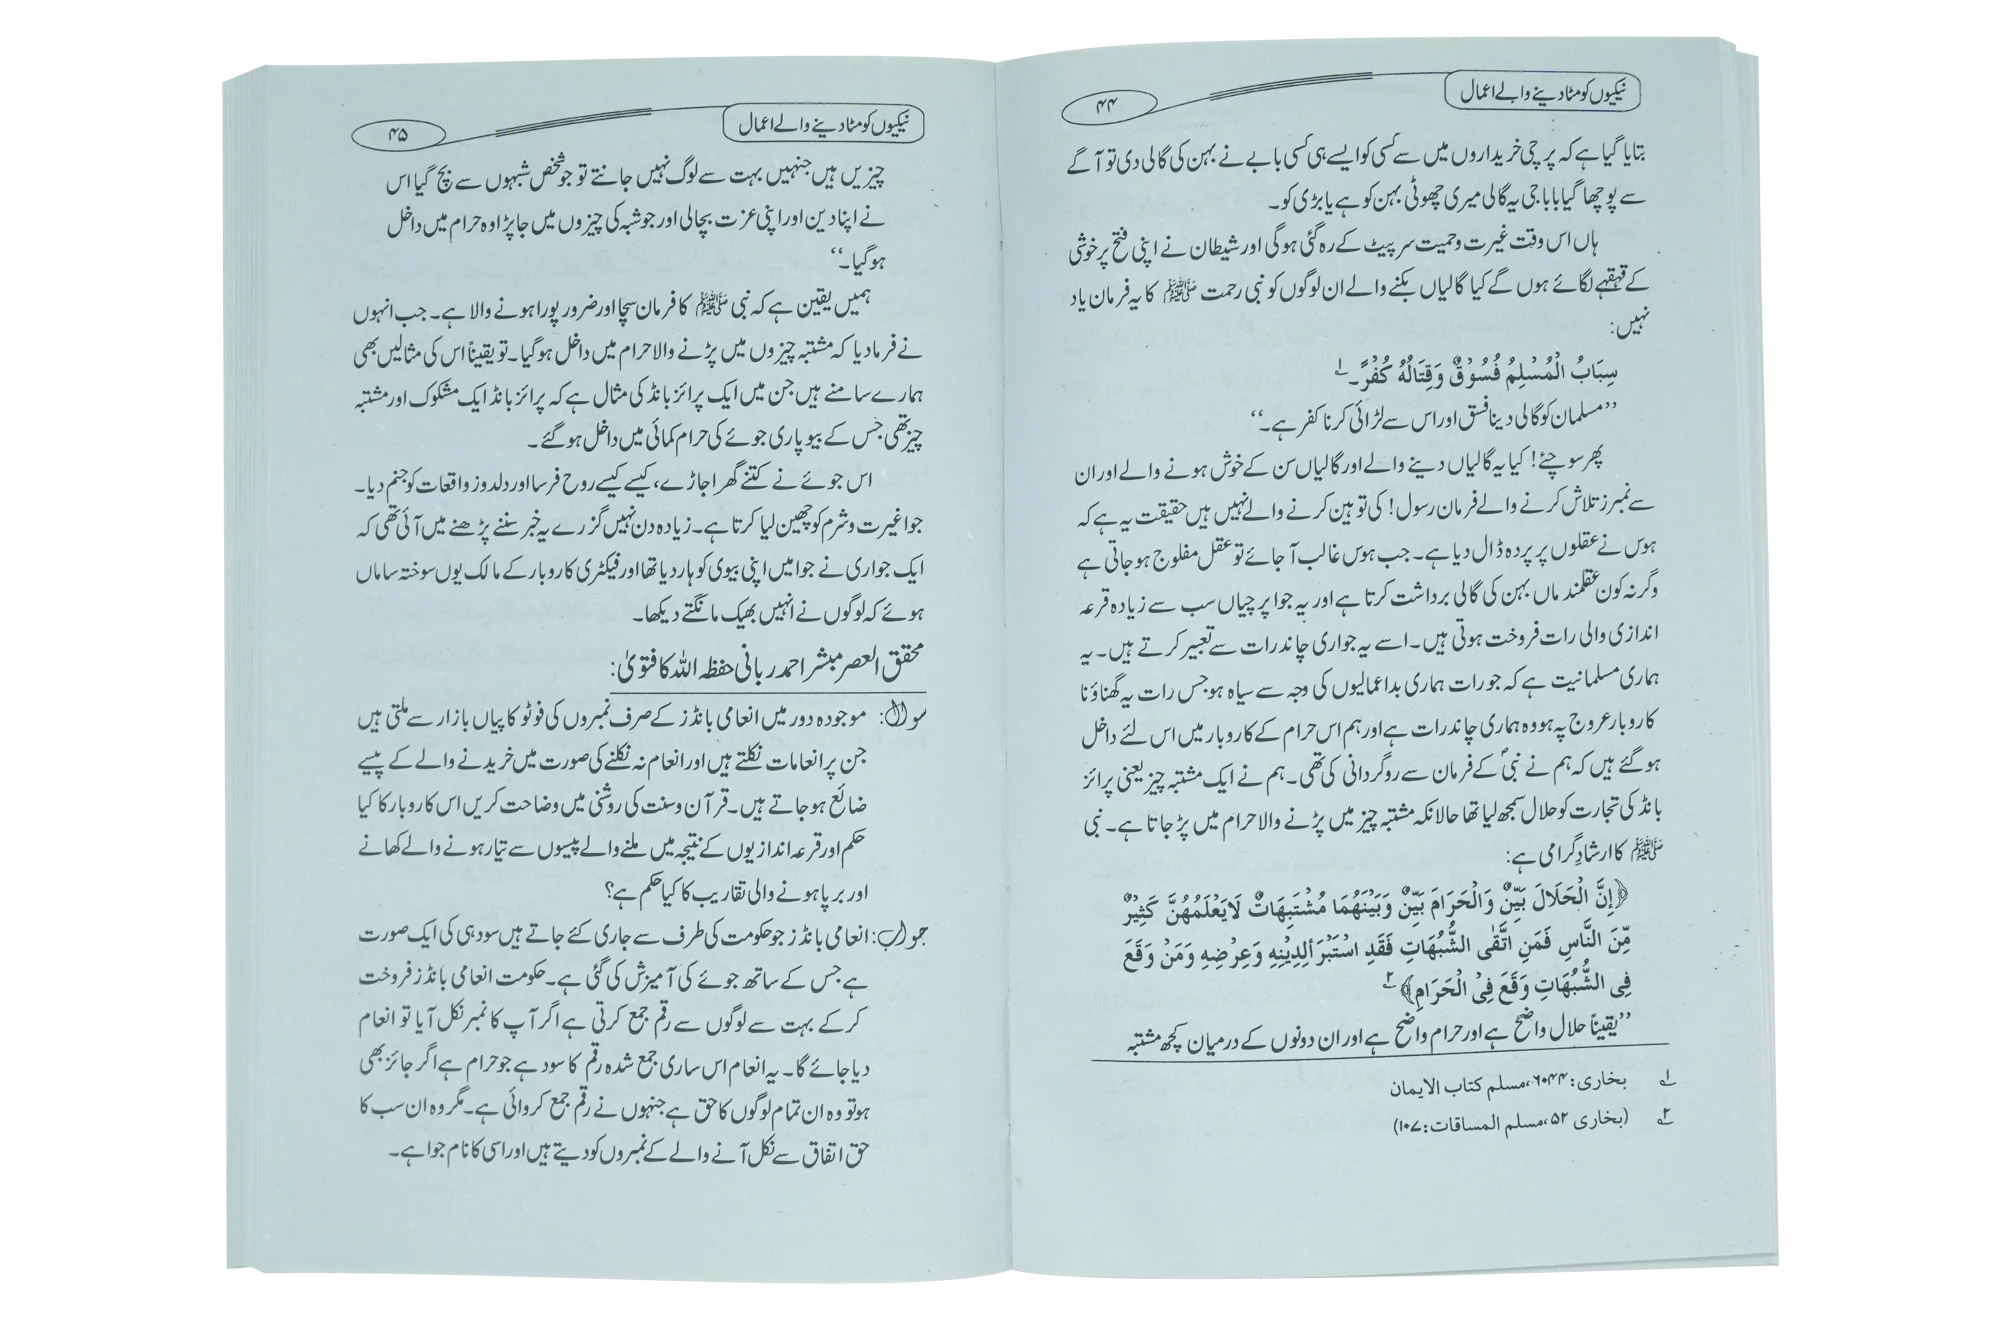 نیکیوں کو مٹا دینے والے اعمال
۴۴
بتایا گیا ہے کہ پرچی خریداروں میں سے کسی کو ایسے ہی کسی بابے نے بہن کی گالی دی تو آگے
سے پوچھا گیا بابا جی یہ گالی میری چھوٹی بہن کو ہے یا بڑی کو۔
ہاں اس وقت غیرت و حمیت سر پیٹ کے رہ گئی ہو گی اور شیطان نے اپنی فتح پر خوشی
کے قہقہے لگائے ہوں گے کیا گالیاں بکنے والے ان لوگوں کو نبی رحمت ﷺ کا یہ فرمان یاد
نہیں:
سِبَابُ الْمُسْلِمُ فُسُوْقٌ وَقِتَالُهُ كُفْرٌ۔ ۱
’’مسلمان کو گالی دینا فسق اور اس سے لڑائی کرنا کفر ہے۔‘‘
پھر سوچئے! کیا یہ گالیاں دینے والے اور گالیاں سن کے خوش ہونے والے اور ان
سے نمبرز تلاش کرنے والے فرمان رسول! کی توہین کرنے والے نہیں ہیں حقیقت یہ ہے کہ
ہوس نے عقلوں پر پردہ ڈال دیا ہے۔ جب ہوس غالب آ جائے تو عقل مفلوج ہو جاتی ہے
وگرنہ کون عقلمند ماں بہن کی گالی برداشت کرتا ہے اور یہ جوا پرچیاں سب سے زیادہ قرعہ
اندازی والی رات فروخت ہوتی ہیں۔ اسے یہ جواری چاند رات سے تعبیر کرتے ہیں۔ یہ
ہماری مسلمانیت ہے کہ جو رات ہماری بداعمالیوں کی وجہ سے سیاہ ہو جس رات یہ گھناؤنا
کاروبار عروج پہ ہو وہ ہماری چاند رات ہے اور ہم اس حرام کے کاروبار میں اس لئے داخل
ہو گئے ہیں کہ ہم نے نبیؐ کے فرمان سے روگردانی کی تھی۔ ہم نے ایک مشتبہ چیز یعنی پرائز
بانڈ کی تجارت کو حلال سمجھ لیا تھا حالانکہ مشتبہ چیز میں پڑنے والا حرام میں پڑ جاتا ہے۔ نبی
ﷺ کا ارشاد گرامی ہے:
﴿إِنَّ الْحَلَالَ بَيِّنٌ وَالْحَرَامَ بَيِّنٌ وَبَيْنَهُمَا مُشْتَبِهَاتٌ لَا يَعْلَمُهُنَّ كَثِيْرٌ
مِّنَ النَّاسِ فَمَنِ اتَّقٰى الشُّبُهَاتِ فَقَدِ اسْتَبْرَأَ لِدِيْنِهِ وَعِرْضِهِ وَمَنْ وَقَعَ
فِى الشُّبُهَاتِ وَقَعَ فِى الْحَرَامِ﴾ ۲
’’یقیناً حلال واضح ہے اور حرام واضح ہے اور ان دونوں کے درمیان کچھ مشتبہ
۱ بخاری: ۶۰۴۴، مسلم کتاب الایمان
۲ (بخاری ۵۲، مسلم المساقات: ۱۰۷)
نیکیوں کو مٹا دینے والے اعمال
۴۵
چیزیں ہیں جنہیں بہت سے لوگ نہیں جانتے تو جو شخص شبہوں سے بچ گیا اس
نے اپنا دین اور اپنی عزت بچالی اور جو شبہ کی چیزوں میں جا پڑا وہ حرام میں داخل
ہو گیا۔‘‘
ہمیں یقین ہے کہ نبی ﷺ کا فرمان سچا اور ضرور پورا ہونے والا ہے۔ جب انہوں
نے فرما دیا کہ مشتبہ چیزوں میں پڑنے والا حرام میں داخل ہو گیا۔ تو یقیناً اس کی مثالیں بھی
ہمارے سامنے ہیں جن میں ایک پرائز بانڈ کی مثال ہے کہ پرائز بانڈ ایک مشکوک اور مشتبہ
چیز تھی جس کے بیوپاری جوئے کی حرام کمائی میں داخل ہو گئے۔
اس جوئے نے کتنے گھر اجاڑے، کیسے کیسے روح فرسا اور دلدوز واقعات کو جنم دیا۔
جوا غیرت و شرم کو چھین لیا کرتا ہے۔ زیادہ دن نہیں گزرے یہ خبر سننے پڑھنے میں آئی تھی کہ
ایک جواری نے جوا میں اپنی بیوی کو ہار دیا تھا اور فیکٹری کاروبار کے مالک یوں سوختہ ساماں
ہوئے کہ لوگوں نے انہیں بھیک مانگتے دیکھا۔
محقق العصر مبشر احمد ربانی حفظہ اللہ کا فتویٰ:
سوال: موجودہ دور میں انعامی بانڈز کے صرف نمبروں کی فوٹو کاپیاں بازار سے ملتی ہیں
جن پر انعامات نکلتے ہیں اور انعام نہ نکلنے کی صورت میں خریدنے والے کے پیسے
ضائع ہو جاتے ہیں۔ قرآن و سنت کی روشنی میں وضاحت کریں اس کاروبار کا کیا
حکم اور قرعہ اندازیوں کے نتیجہ میں ملنے والے پیسوں سے تیار ہونے والے کھانے
اور برپا ہونے والی تقاریب کا کیا حکم ہے؟
جواب: انعامی بانڈز جو حکومت کی طرف سے جاری کئے جاتے ہیں سود ہی کی ایک صورت
ہے جس کے ساتھ جوئے کی آمیزش کی گئی ہے۔ حکومت انعامی بانڈز فروخت
کر کے بہت سے لوگوں سے رقم جمع کرتی ہے اگر آپ کا نمبر نکل آیا تو انعام
دیا جائے گا۔ یہ انعام اس ساری جمع شدہ رقم کا سود ہے جو حرام ہے اگر جائز بھی
ہو تو وہ ان تمام لوگوں کا حق ہے جنہوں نے رقم جمع کروائی ہے۔ مگر وہ ان سب کا
حق اتفاق سے نکل آنے والے کے نمبروں کو دیتے ہیں اور اسی کا نام جوا ہے۔